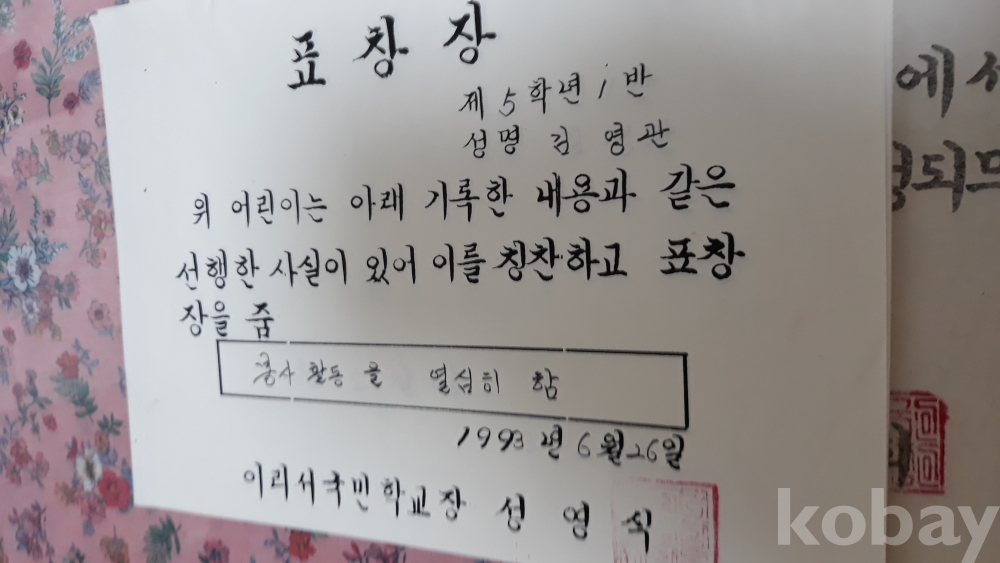 표창장
제5학년 1반
성명 김영관
위 어린이는 아래 기록한 내용과 같은
선행한 사실이 있어 이를 칭찬하고 표창
장을 줌
봉사 활동을 열심히 함
1993년 6월 26일
이리서국민학교장 성영식
에서
되므
kobay